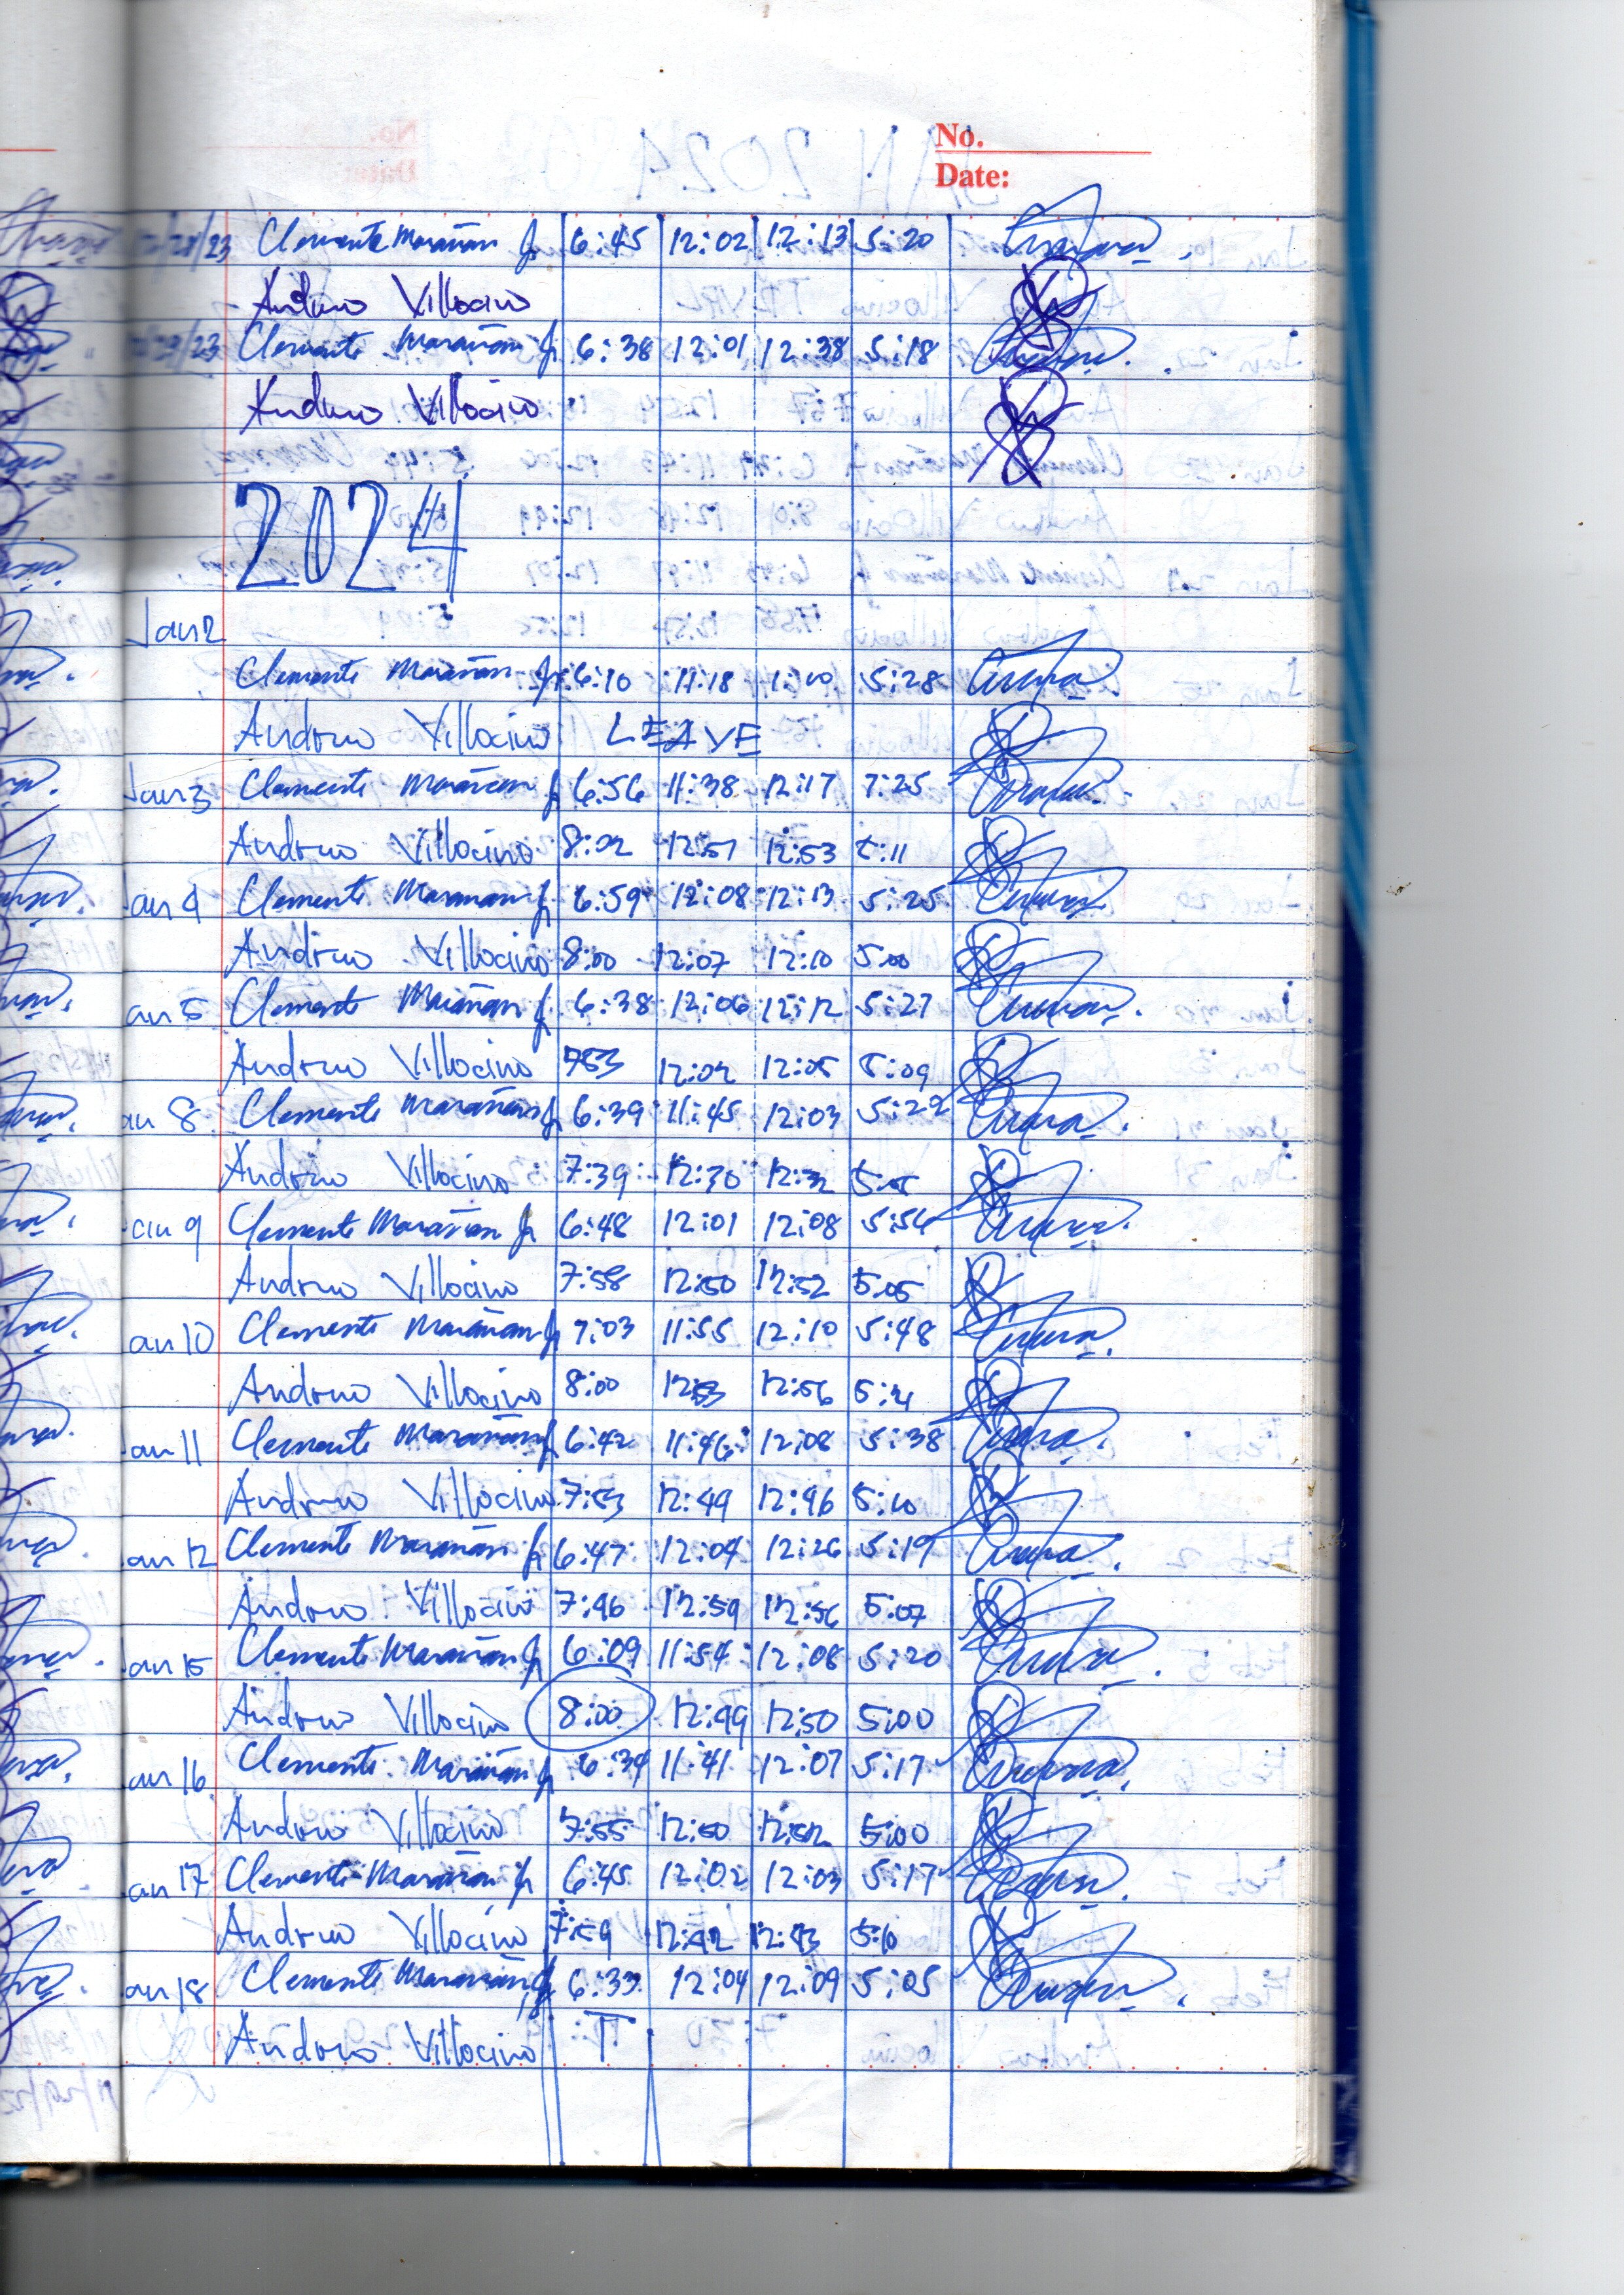 No.
Date:
/28/23 Clemente Marañon Jr 6:45 12:02 12:13 5:20
Andrino Villocino
/23 Clemente Marañon Jr 6:38 12:01 12:38 5:18
Andrino Villocino
2024
Jan 2
Clemente Marañon Jr 6:10 11:18 1:10 5:28
Andrino Villocino LEAVE
Jan 3 Clemente Marañon Jr 6:56 11:38 12:17 7:25
Andrino Villocino 8:02 12:51 12:53 5:11
Jan 4 Clemente Marañon Jr 6:59 12:08 12:13 5:25
Andrino Villocino 8:00 12:07 12:10 5:00
an 5 Clemente Marañon Jr 6:38 12:06 12:12 5:27
Andrino Villocino 753 12:02 12:05 5:09
an 8 Clemente Marañon Jr 6:39 11:45 12:03 5:22
Andrino Villocino 7:39 12:30 12:32 5:05
an 9 Clemente Marañon Jr 6:48 12:01 12:08 5:56
Andrino Villocino 7:58 12:50 12:52 5:05
an 10 Clemente Marañon Jr 7:03 11:55 12:10 5:48
Andrino Villocino 8:00 12:53 12:56 5:21
Jan 11 Clemente Marañon Jr 6:42 11:46 12:08 5:38
Andrino Villocino 7:53 12:49 12:46 5:10
an 12 Clemente Marañon Jr 6:47 12:04 12:26 5:19
Andrino Villocino 7:46 12:59 12:56 5:07
Jan 15 Clemente Marañon Jr 6:09 11:54 12:08 5:20
Andrino Villocino 8:00 12:49 12:50 5:00
an 16 Clemente Marañon Jr 6:34 11:41 12:07 5:17
Andrino Villocino 7:55 12:50 12:52 5:00
an 17 Clemente Marañon Jr 6:45 12:02 12:03 5:17
Andrino Villocino 7:59 12:42 12:43 5:10
an 18 Clemente Marañon Jr 6:33 12:04 12:09 5:05
Andrino Villocino T